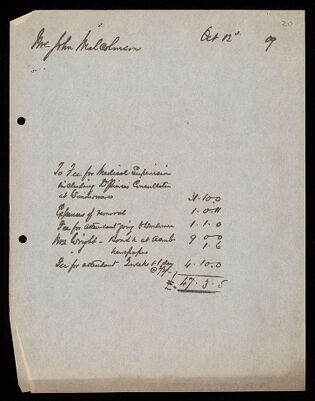 20
Mr John Malcolmson Oct 12th 09
To Fee for Medical Supervision
including Dr Consultation
at 31.10.0
Expenses of removal 1.0.11
Fee for attendant going to 1.1.0
Mr Wright - Board at 9 0 0
" newspapers 1.6
Fee for attendant 2 weeks & 1 day 4.10.0
@
£47.3.5